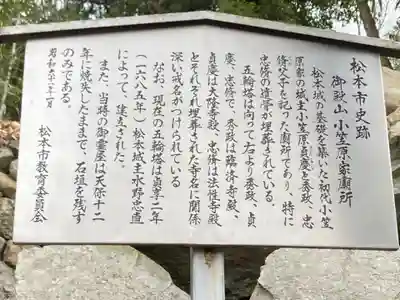 松本市史跡
御殿山小笠原家廟所
松本城の基礎を築いた初代小笠
原家の城主小笠原貞慶と秀政、忠
脩父子を祀った廟所であり、特に
忠脩の遺骨が埋葬されている。
五輪塔は向って右より秀政、貞
慶、忠脩で、秀政は臨済寺殿、
貞慶は大隆寺殿、忠脩は法性寺殿
とそれぞれ埋葬された寺名に関係
深い戒名がつけられている
なお、現在の五輪塔は貞享二年
(一六八五年)松本城主水野忠直
によって、建立された。
また、当時の御霊屋は天保十二
年に焼失したままで、石垣を残す
のみである。
昭和六十二年一月
松本市教育委員会